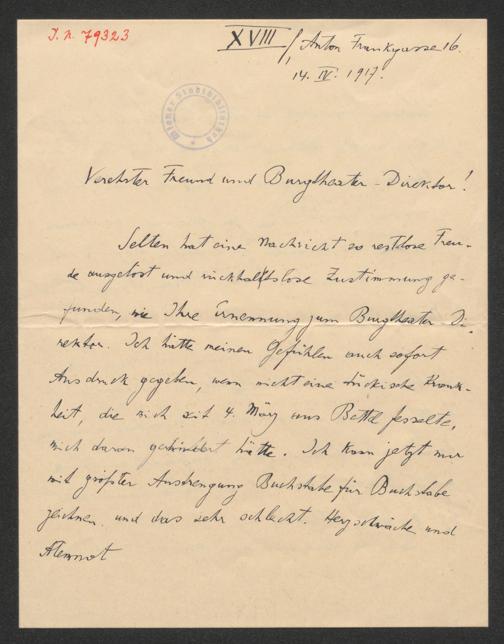 J. N. 79323
XVIII/ Anton Frankgasse 16.
14. IV. 1917.
Wiener Stadtbibliothek
Verehrter Freund und Burgtheater-Direktor!
Selten hat eine Nachricht so restlose Freu-
de ausgelöst und rückhaltslose Zustimmung ge-
funden, wie Ihre Ernennung zum Burgtheater-Di-
rektor. Ich hätte meinen Gefühlen auch sofort
Ausdruck gegeben, wenn nicht eine tückische Krank-
heit, die mich seit 4. März ans Bette fesselte,
mich daran gehindert hätte. Ich kann jetzt nur
mit größter Anstrengung Buchstabe für Buchstabe
zeichnen und das sehr schlecht. Herzschwäche und
Atemnot